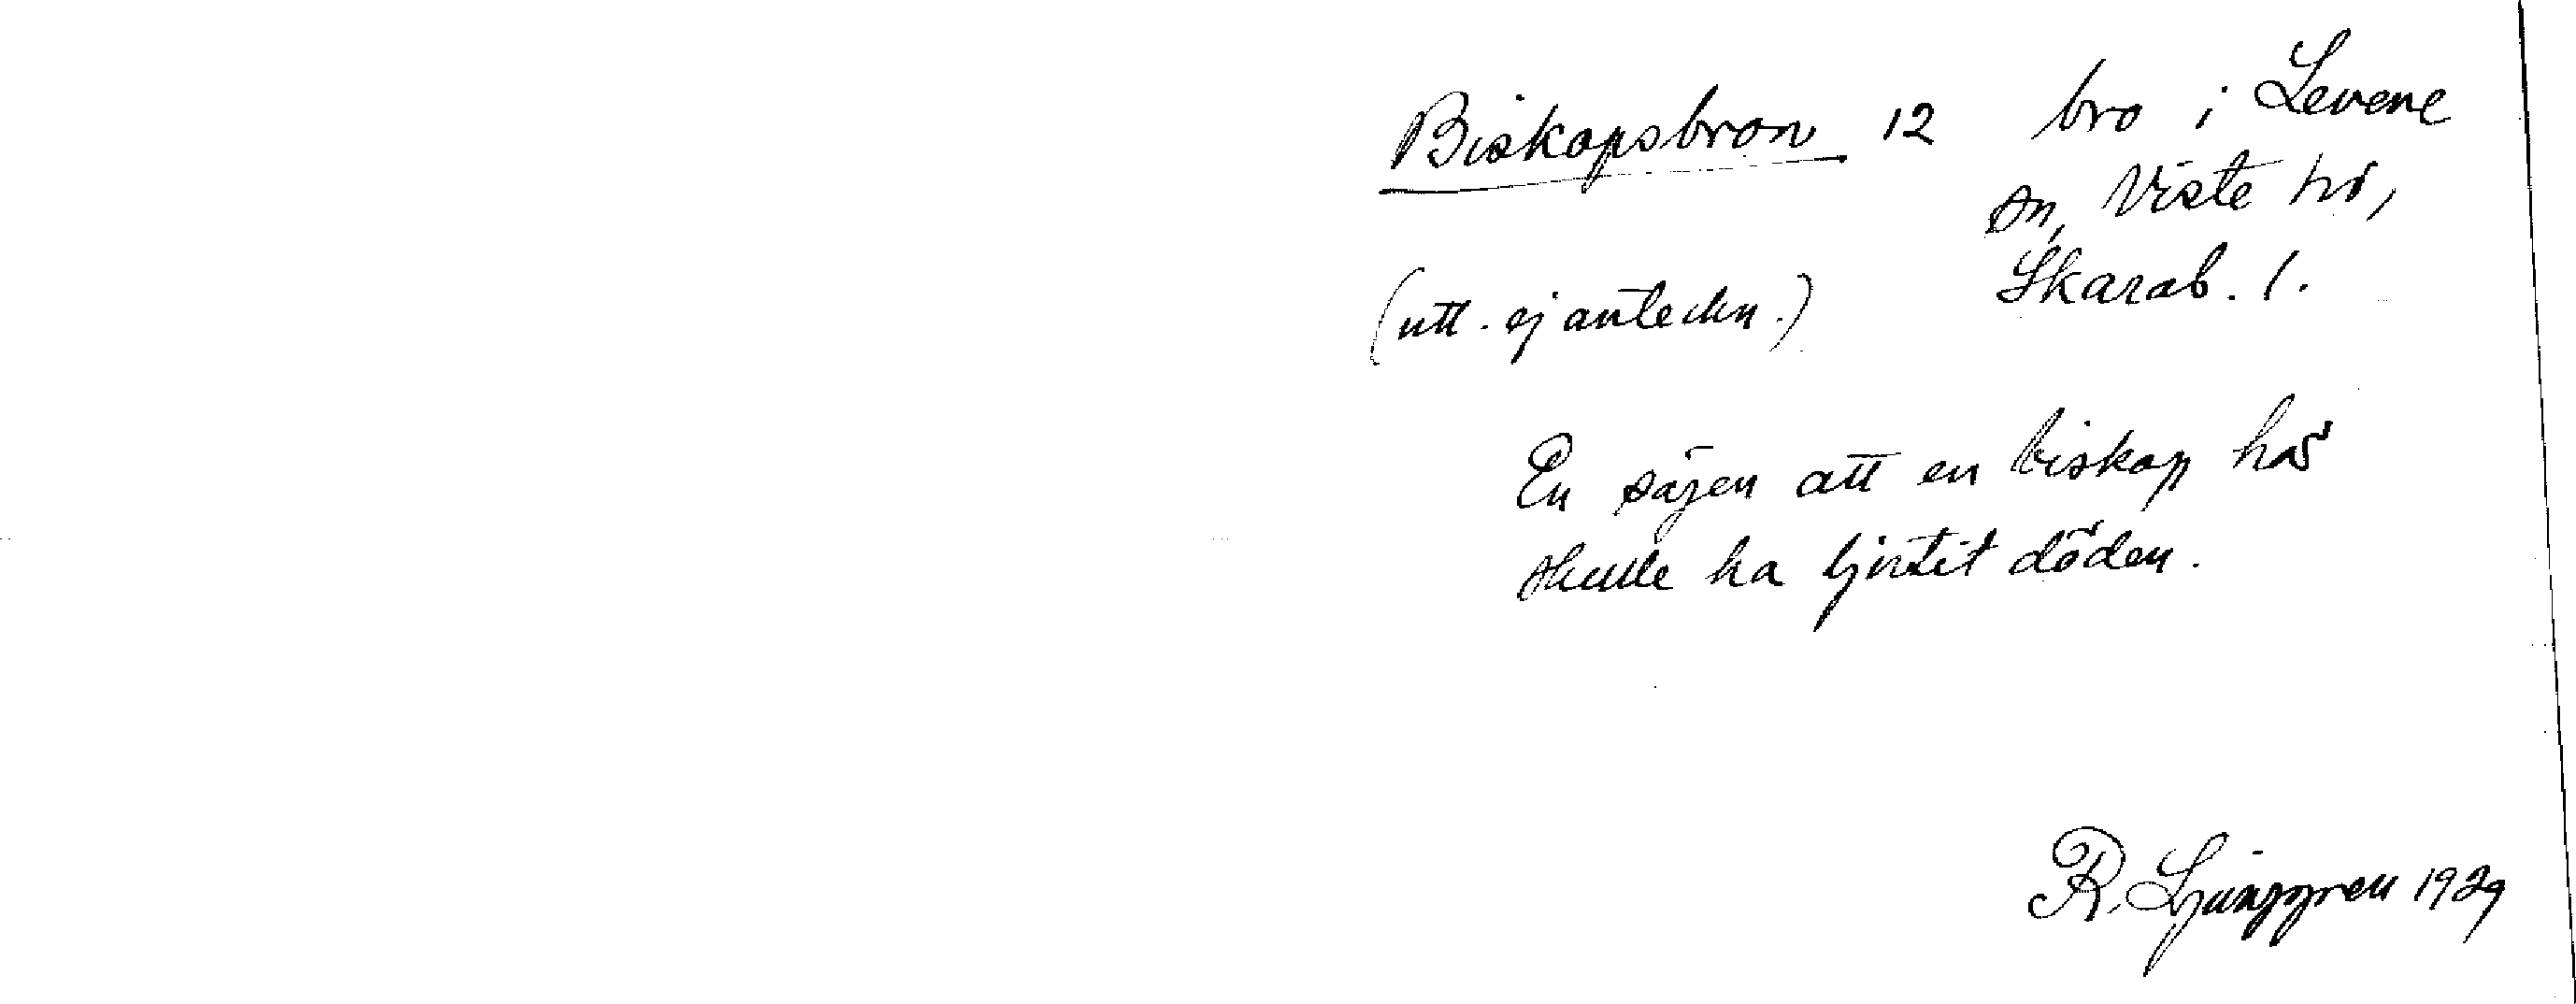 Biskopsbron 12 bro i Levene
sn, Viste hd,
(utt. ej anteckn.) Skarab. l.
En sägen att en biskop här
skulle ha ljutit döden.
R. Ljunggren 1929